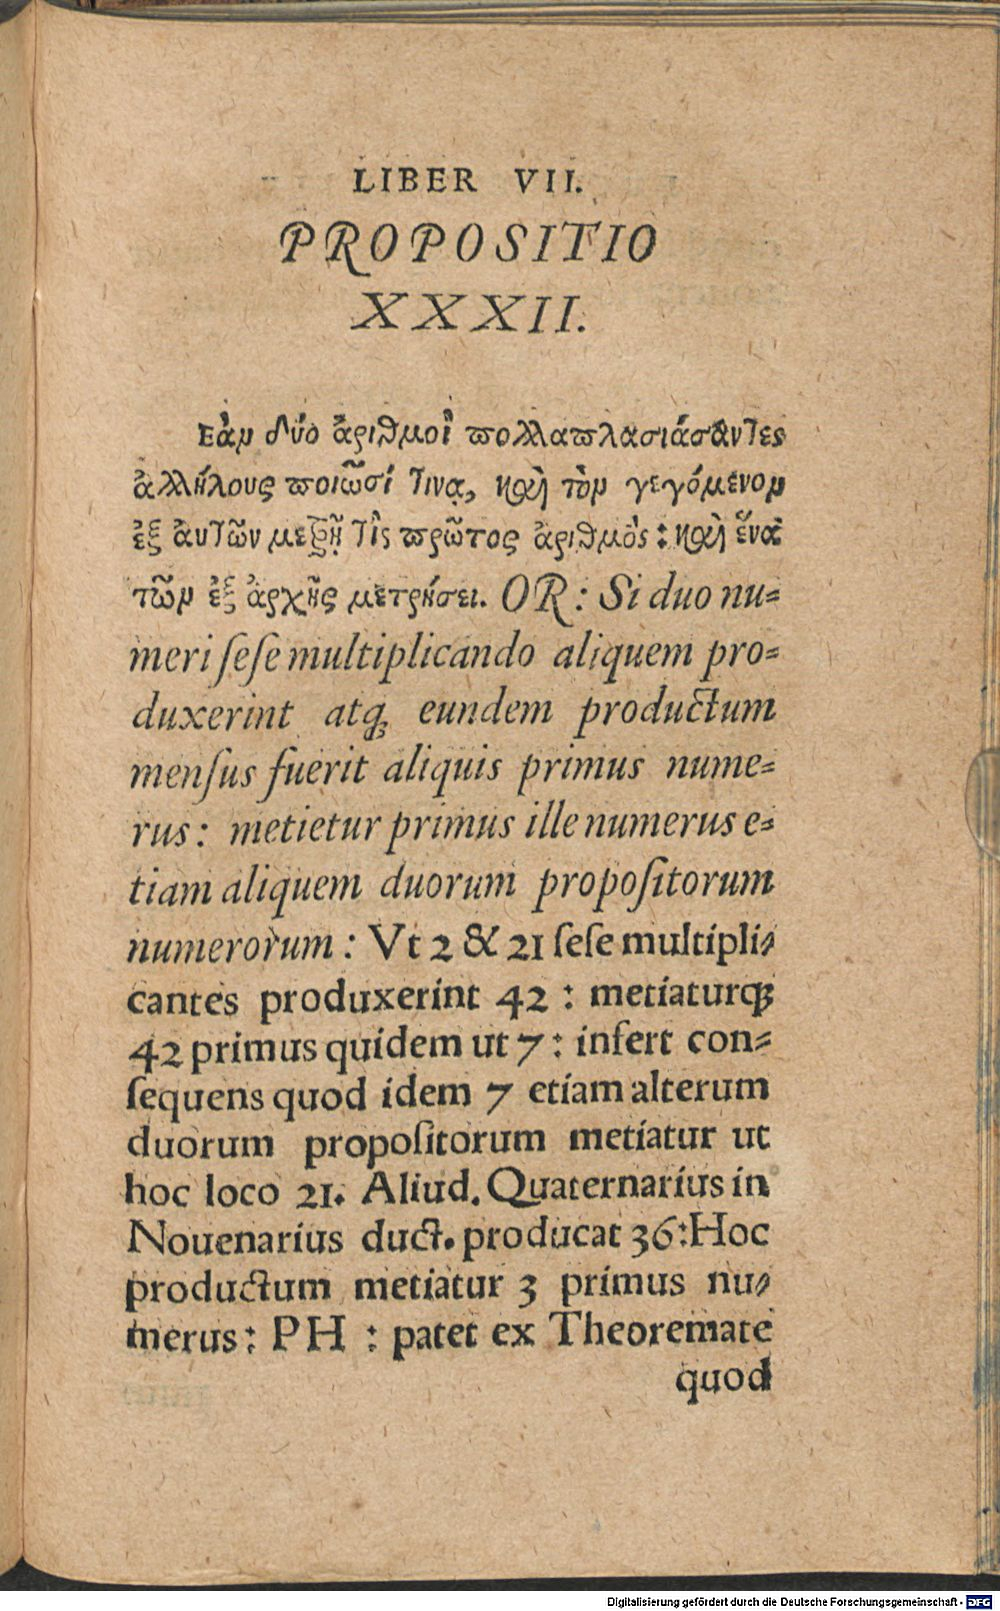 LIBER VII.
PROPOSITIO
XXXII.
Εὰν δύο ἄριθμοὶ πολλαπλασιάσαντες
ἀλλήλους ποιῶσί τινα, καὶ τὸν γεγόμενον
ἐξ ἀυτῶν μετρῇ τὶς πρῶτος ἀριθμὸς: καὶ ἕνα
τῶν ἐξ ἀρχῆς μετρήσει. OR: Si duo nu-
meri ſeſe multiplicando aliquem pro-
duxerint atq; eundem productum
menſus fuerit aliquis primus nume-
rus: metietur primus ille numerus e-
tiam aliquem duorum propoſitorum
numerorum: Vt 2 & 21 ſeſe multipli-
cantes produxerint 42: metiaturq;
42 primus quidem ut 7: inſert con-
ſequens quod idem 7 etiam alterum
duorum propoſitorum metiatur ut
hoc loco 21. Aliud. Quaternarius in
Nouenarius duct. producat 36: Hoc
productum metiatur 3 primus nu-
merus: PH: patet ex Theoremate
quod
Digitalisierung gefördert durch die Deutsche Forschungsgemeinschaft - DFG